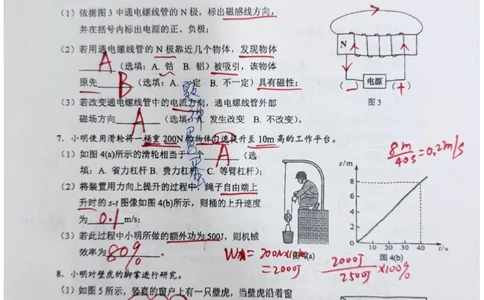 (1) 依据图 3 中通电螺线管的 N 极,标出磁感线方向,
并在括号内标出电源的正、负极;
(2) 若用通电螺线管的 N 极靠近几个物体,发现物体
A (选填: A. 钴 B. 铝) 被吸引,该物体
原先 B (选填: A. 一定 B. 不一定) 具有磁性;
(3) 若改变通电螺线管中的电流方向,通电螺线管外部
磁场方向 A (选填: A. 发生改变 B. 不改变)。
N
电源
(-) (+)
图 3
7. 小明使用滑轮将一桶重 200N 的物体匀速提升至 10m 高的工作平台。
(1) 如图 4(a)所示的滑轮相当于一个 A (选
填: A. 省力杠杆 B. 费力杠杆 C. 等臂杠杆);
(2) 将装置用力向上提升的过程中,绳子自由端上
升时的 s-t 图像如图 4(b)所示,则桶的上升速度
为 0.1 m/s;
(3) 若此过程中小明所做的额外功为 500J,则机械
效率为 80% 。
8m/40s=0.2m/s
s/m
8
6
4
2
0 10 20 30 40 t/s
图 4(a)
图 4(b)
W有=200N×10m
=2000J
2000J/2500J×100%
8. 小明对壁虎的脚掌进行研究。
(1) 如图 5 所示,竖直的窗户上有一只壁虎,当壁虎沿着窗